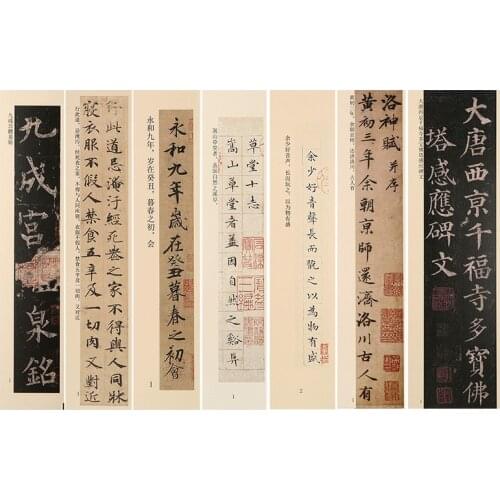 九成宫醴泉铭
九成宮
泉銘
行此道，忌淹污、经死丧之家，不得与人同床寝，衣服不假人，禁食五辛及一切肉，又对近
行此道忌淹污經死喪之家不得與人同牀
寢衣服不假人禁食五辛及一切肉又對近
1
永和九年，岁在癸丑，暮春之初，会
永和九年歲在癸丑暮春之初會
1
嵩山草堂者，盖因自然之溪阜，
草堂十志
嵩山草堂者盖因自然之谿阜
1
余少好音声，长而玩之，以为物有盛
余少好音聲長而翫之以為物有盛
2
黄初三年，余朝京师，还济洛川。古人有
洛神賦并序
黄初三年余朝京師還濟洛川古人有
1
大唐西京千福寺多宝佛塔感应碑文
大唐西京千福寺多寶佛
塔感應碑文
1